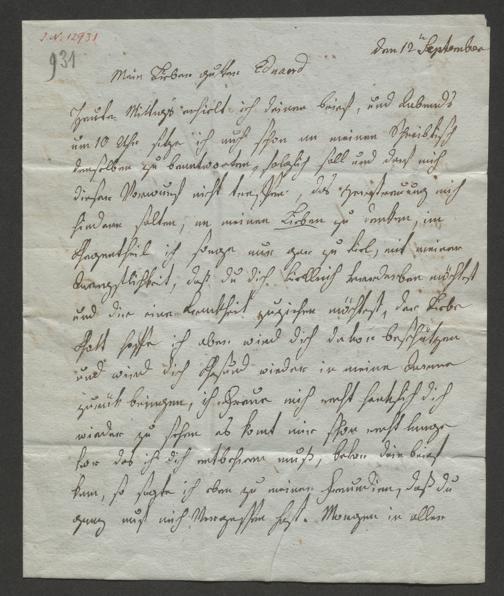 J. N. 12931
931
den 12 September
Mein Lieber guter Eduard
Heute Mittags erhielt ich deinen brief, und Abends
um 10 Uhr sitze ich auch schon an meinen Schreibtisch
denselben zu beantworten, folglich soll und darf mich
dieser Vorwurf nicht treffen, das Zerstreuung mich
hindern sollten, an meinen Lieben zu denken, im
Gegentheil ich sorge nur gar zu viel, mit meiner
Aengstlichkeit, daß du dich verderben möchtest
und dir eine Krankheit zuziehen möchtest, der liebe
Gott hoffe ich aber wird dich davor beschützen
und wird dich Gesund wieder in meine Arme
zurück bringen, ich freue mich recht herzlich dich
wieder zu sehen es komt mir schon recht lange
vor das ich dich entbehren muß, bevor dein brief
kam, so sagte ich eben zu meiner Freundien, daß du
ganz auf mich Vergessen hast. Morgen in aller